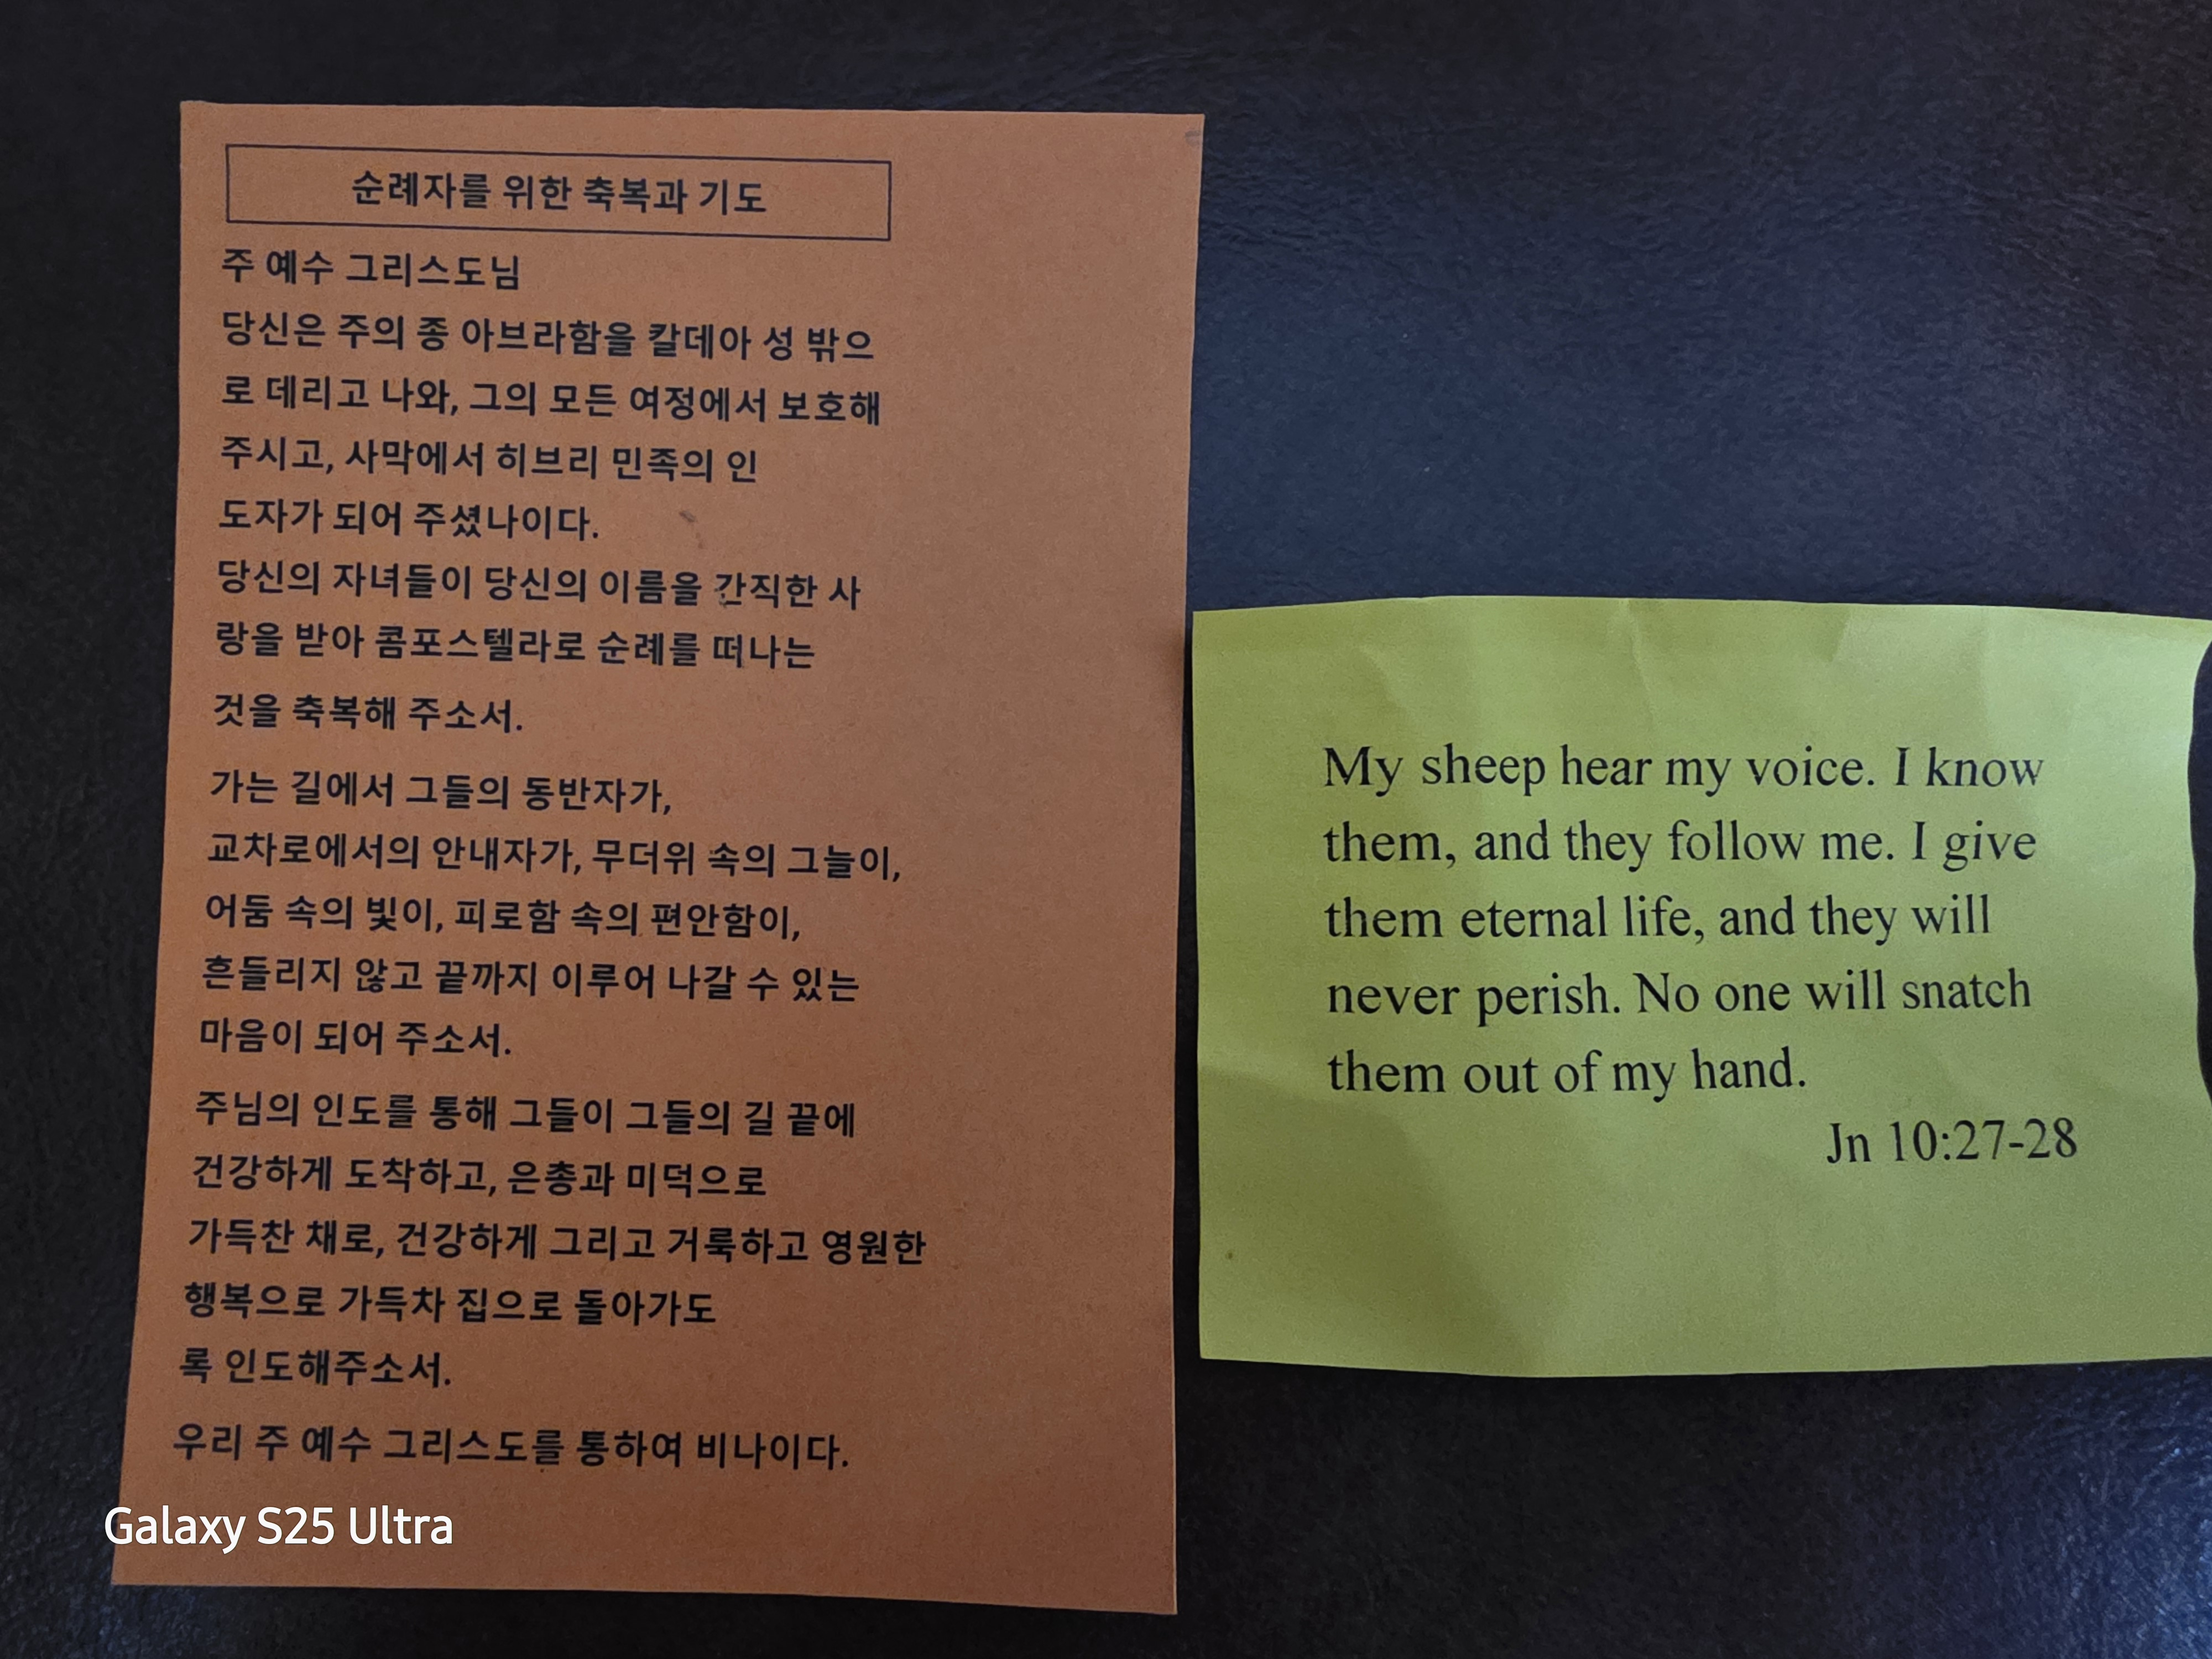 순례자를 위한 축복과 기도
주 예수 그리스도님
당신은 주의 종 아브라함을 칼데아 성 밖으
로 데리고 나와, 그의 모든 여정에서 보호해
주시고, 사막에서 히브리 민족의 인
도자가 되어 주셨나이다.
당신의 자녀들이 당신의 이름을 간직한 사
랑을 받아 콤포스텔라로 순례를 떠나는
것을 축복해 주소서.
가는 길에서 그들의 동반자가,
교차로에서의 안내자가, 무더위 속의 그늘이,
어둠 속의 빛이, 피로함 속의 편안함이,
흔들리지 않고 끝까지 이루어 나갈 수 있는
마음이 되어 주소서.
주님의 인도를 통해 그들이 그들의 길 끝에
건강하게 도착하고, 은총과 미덕으로
가득찬 채로, 건강하게 그리고 거룩하고 영원한
행복으로 가득차 집으로 돌아가도
록 인도해주소서.
우리 주 예수 그리스도를 통하여 비나이다.
My sheep hear my voice. I know
them, and they follow me. I give
them eternal life, and they will
never perish. No one will snatch
them out of my hand.
Jn 10:27-28
Galaxy S25 Ultra